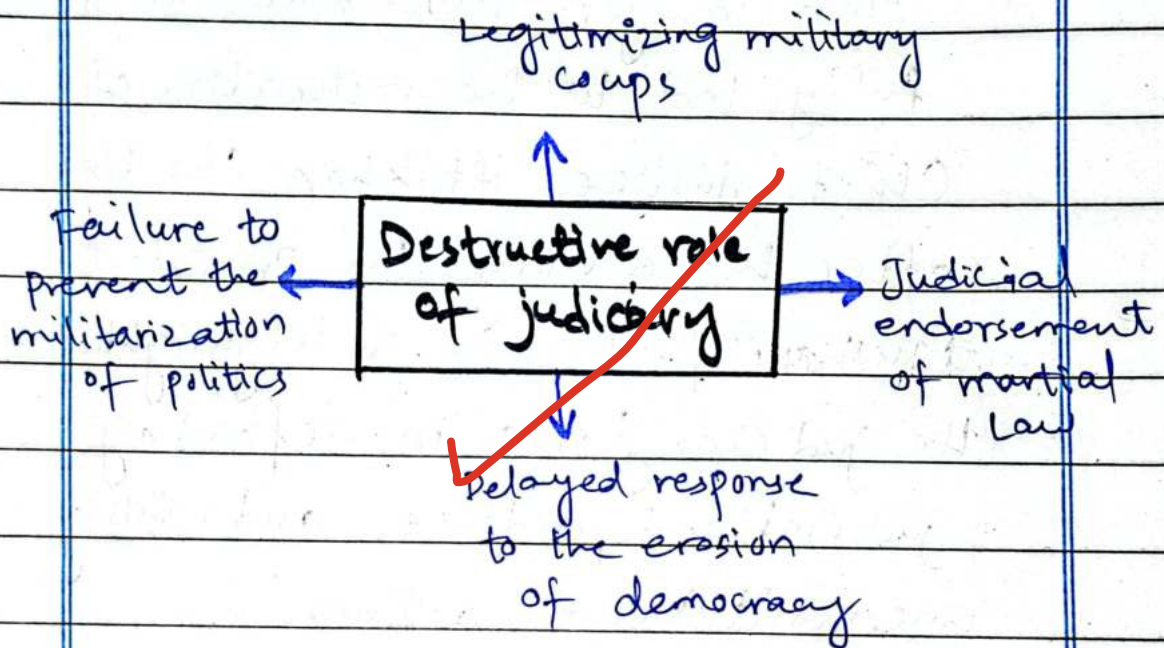 Legitimizing military
coups
Failure to
prevent the
militarization
of politics
Destructive role
of judiciary
Judicial
endorsement
of martial
Law
Delayed response
to the erosion
of democracy